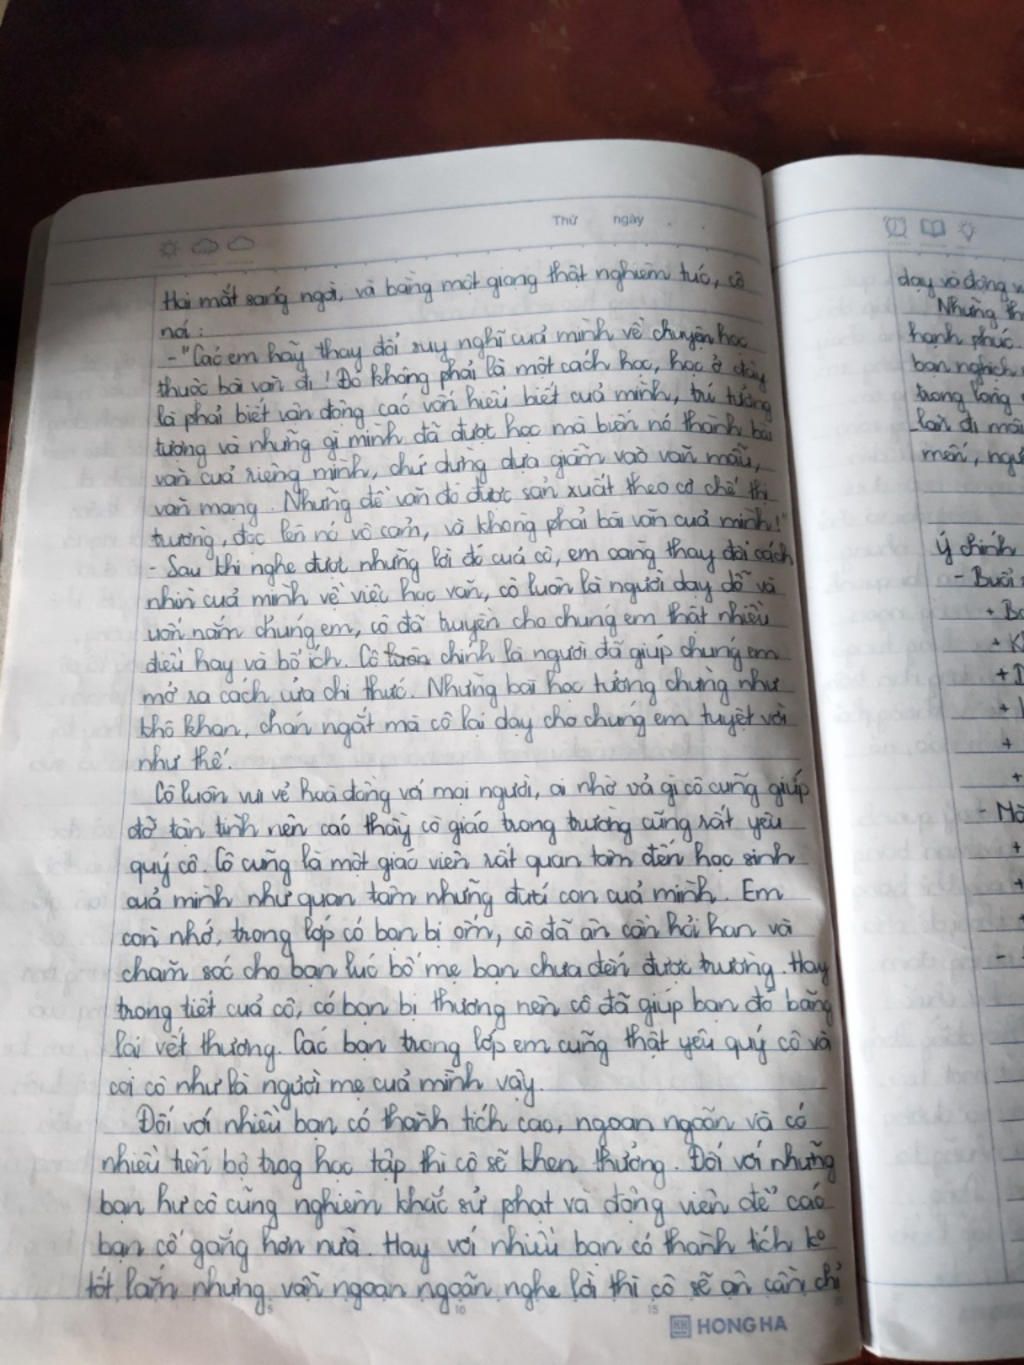 Thứ ngày
Hai mắt sáng ngời, và bằng một giọng thật nghiêm túc, cô
nói:
- "Các em hãy thay đổi suy nghĩ cuả mình về chuyện học
thuộc bài văn đi! Đó không phải là một cách học, học ở đây
là phải biết vận dụng các vốn hiểu biết cuả mình, trí tưởng
tượng và những gì mình đã được học mà biến nó thành bài
văn cuả riêng mình, chứ đừng dựa giẫm vào văn mẫu,
văn mạng. Những đề văn đó được sản xuất theo cơ chế thị
trường, đọc lên nó vô cảm, và không phải bài văn cuả mình!"
- Sau khi nghe được những lời đó cuả cô, em càng thay đổi cách
nhìn cuả mình về việc học văn, cô luôn là người dạy dỗ và
uốn nắn chúng em, cô đã truyền cho chúng em thật nhiều
điều hay và bổ ích. Cô luôn chính là người đã giúp chúng em
mở ra cách cửa chi thức. Những bài học tưởng chừng như
khô khan, chán ngắt mà cô lại dạy cho chúng em tuyệt vời
như thế.
Cô luôn vui vẻ hoà đồng với mọi người, ai nhờ vả gì cô cũng giúp
đỡ tận tình nên các thầy cô giáo trong trường cũng rất yêu
quý cô. Cô cũng là một giáo viên rất quan tâm đến học sinh
cuả mình như quan tâm những đứa con cuả mình. Em
còn nhớ, trong lớp có bạn bị ốm, cô đã ân cần hỏi han và
chăm sóc cho bạn lúc bố mẹ bạn chưa đến được trường. Hay
trong tiết cuả cô, có bạn bị thương nên cô đã giúp bạn đó băng
lại vết thương. Các bạn trong lớp em cũng thật yêu quý cô và
coi cô như là người mẹ cuả mình vậy.
Đối với nhiều bạn có thành tích cao, ngoan ngoãn và có
nhiều tiến bộ trog học tập thì cô sẽ khen thưởng. Đối với những
bạn hư cô cũng nghiêm khắc sử phạt và động viên để các
bạn cố gắng hơn nữa. Hay với nhiều bạn có thành tích ko
tốt lắm nhưng vẫn ngoan ngoãn nghe lời thì cô sẽ ân cần chỉ
HONG HA
dạy và động v
Những th
hạnh phúc.
bạn nghịch
trong lòng
lần đi
mến, ngư
Ý chính
- Buổi